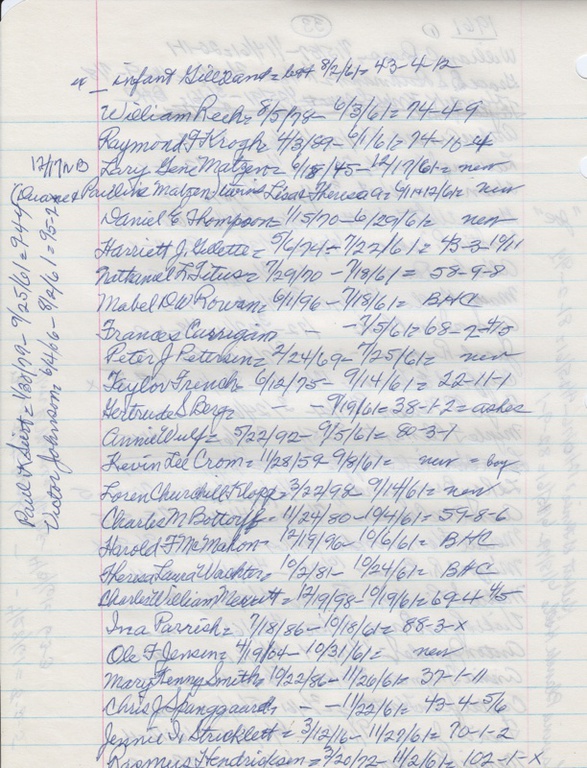 infant Gilliland = 8/2/61 = 43-4-12
William Rech = 8/5/78 - 6/3/61 = 74-4-9
Raymond F Krogh = 4/3/89 - 6/1/61 = 74-16-4
Larry Gene Matzen = 9/15/45 - 12/17/61 = new
Duane & Pauline Matzen twins Lisa & Theresa = 9/11-12/61 = new
Daniel E Thompson = 11/5/70 - 6/29/61 = new
Harriett J. Gillette = 5/6/74 - 7/22/61 = 43-3-10/11
Nathaniel F. Titus = 7/29/70 - 7/18/61 = 58-9-8
Mabel D.W. Rowan = 6/1/96 - 7/18/61 = BHC
Frances Currigan - - 7/5/61 = 68-2-4/5
Peter J Petersen = 2/24/69 - 7/25/61 = new
Taylor French = 6/12/75 - 9/14/61 = 22-11-1
Gertrude S Berg = - - 9/19/61 = 38-1-2 = ashes
Annie Wulf = 5/22/92 - 9/5/61 = 80-3-1
Kevin Lee Crom = 11/28/59 - 9/8/61 = new = boy
Loren Churchill Klopp = 3/22/98 - 9/14/61 = new
Charles M Bottorff = 11/24/80 - 10/4/61 = 59-8-6
Harold F McMahon = 12/19/96 - 10/6/61 = BHC
Theresa Laura Wachter = 10/2/81 - 10/24/61 = BHC
Charles William Merritt = 12/9/98 - 10/19/61 = 69-4 4/5
Ina Parrish = 7/18/86 - 10/18/61 = 88-3-x
Ole F Jensen = 4/19/04 - 10/31/61 = new
Mary Henny Smith = 10/22/86 - 11/26/61 = 37-1-11
Chris J Spanggaard = - - 11/22/61 = 43-4-5/6
Jennie I. Stricklett = 3/12/16 - 11/27/61 = 70-1-2
Rasmus Hendricksen = 3/20/72 - 11/2/61 = 102-1-x
12/17 NB
Paul K Siert = 1/30/79 - 9/25/61 = 94-4
Victor Johnson = 6/4/66 - 8/4/61 = 95-2
1961